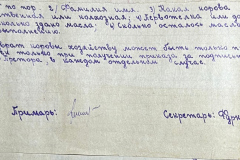 по пор. 2/ Фамилия имя. 3/ Какая корова
ственная или колхозная; 4/Первотелка или
сколько здано масла; 6/Сколько осталось масла
выполнению.
врат коровы хозяйству может быть только п
только при получении приказа за подписью
Претора в каждом отдельном случае.
Примарь:
Секретарь: